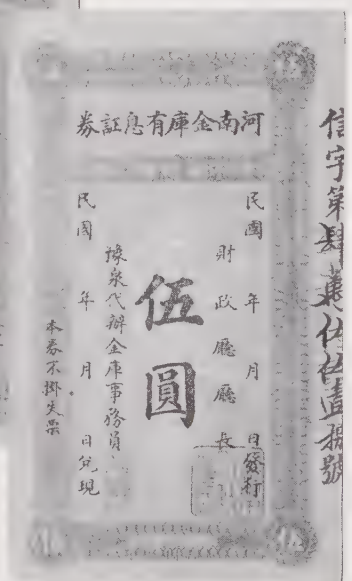 河南金庫有息証券
信字第肆萬伍仟伍佰壹拾號
民國 年 月 日發行
財政廳廳長
伍圓
豫泉代辦金庫事務員
民國 年 月 日兌現
本券不掛失票